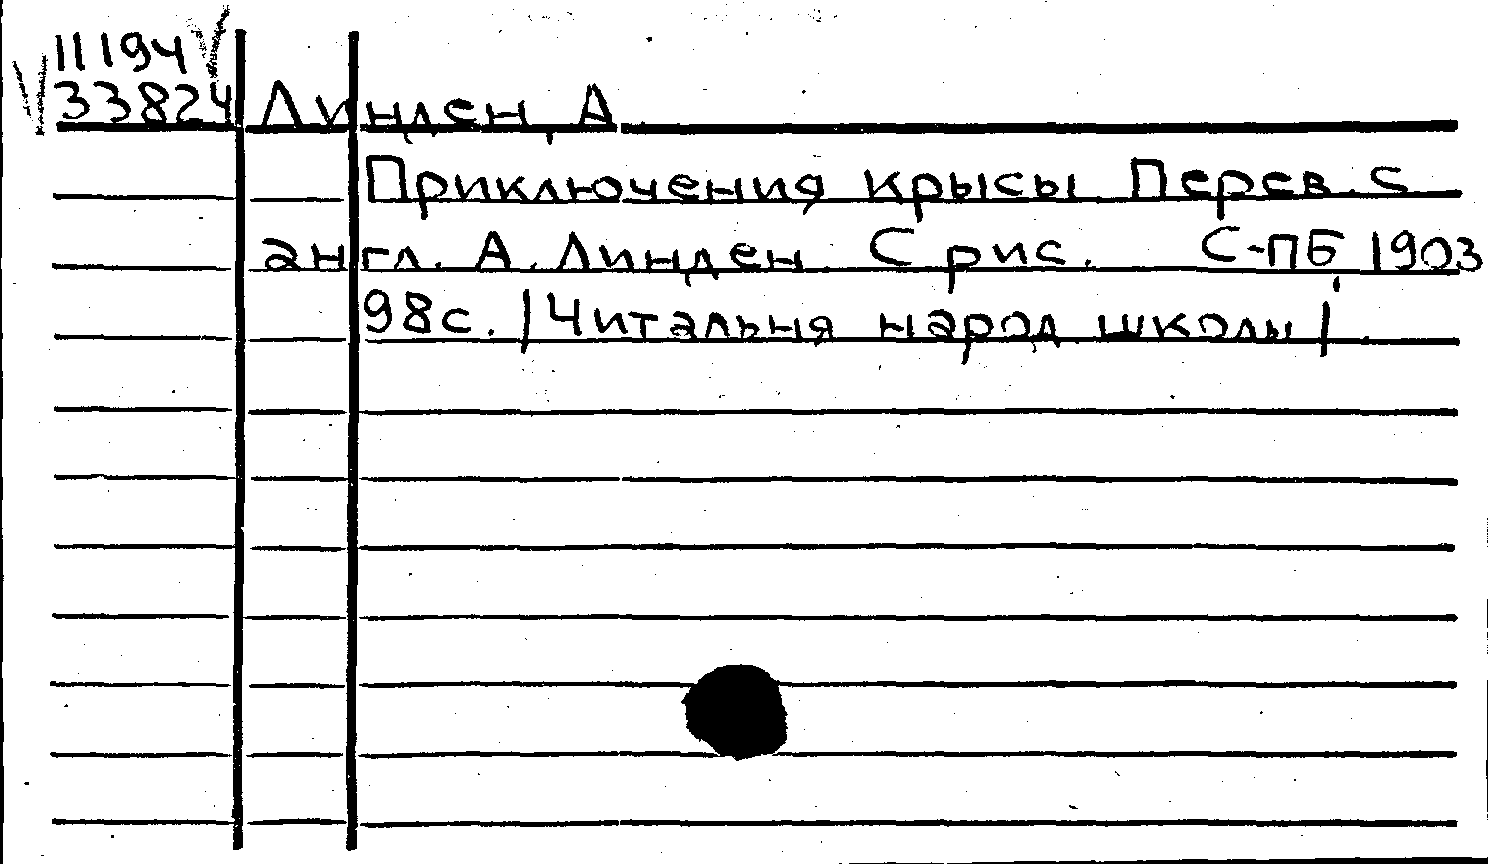 11194
33824 Линден, А.
Приключения крысы Перев. с
англ. А. Линден. С рис. С-ПБ, 1903
98с. |Читальня народ школы|.